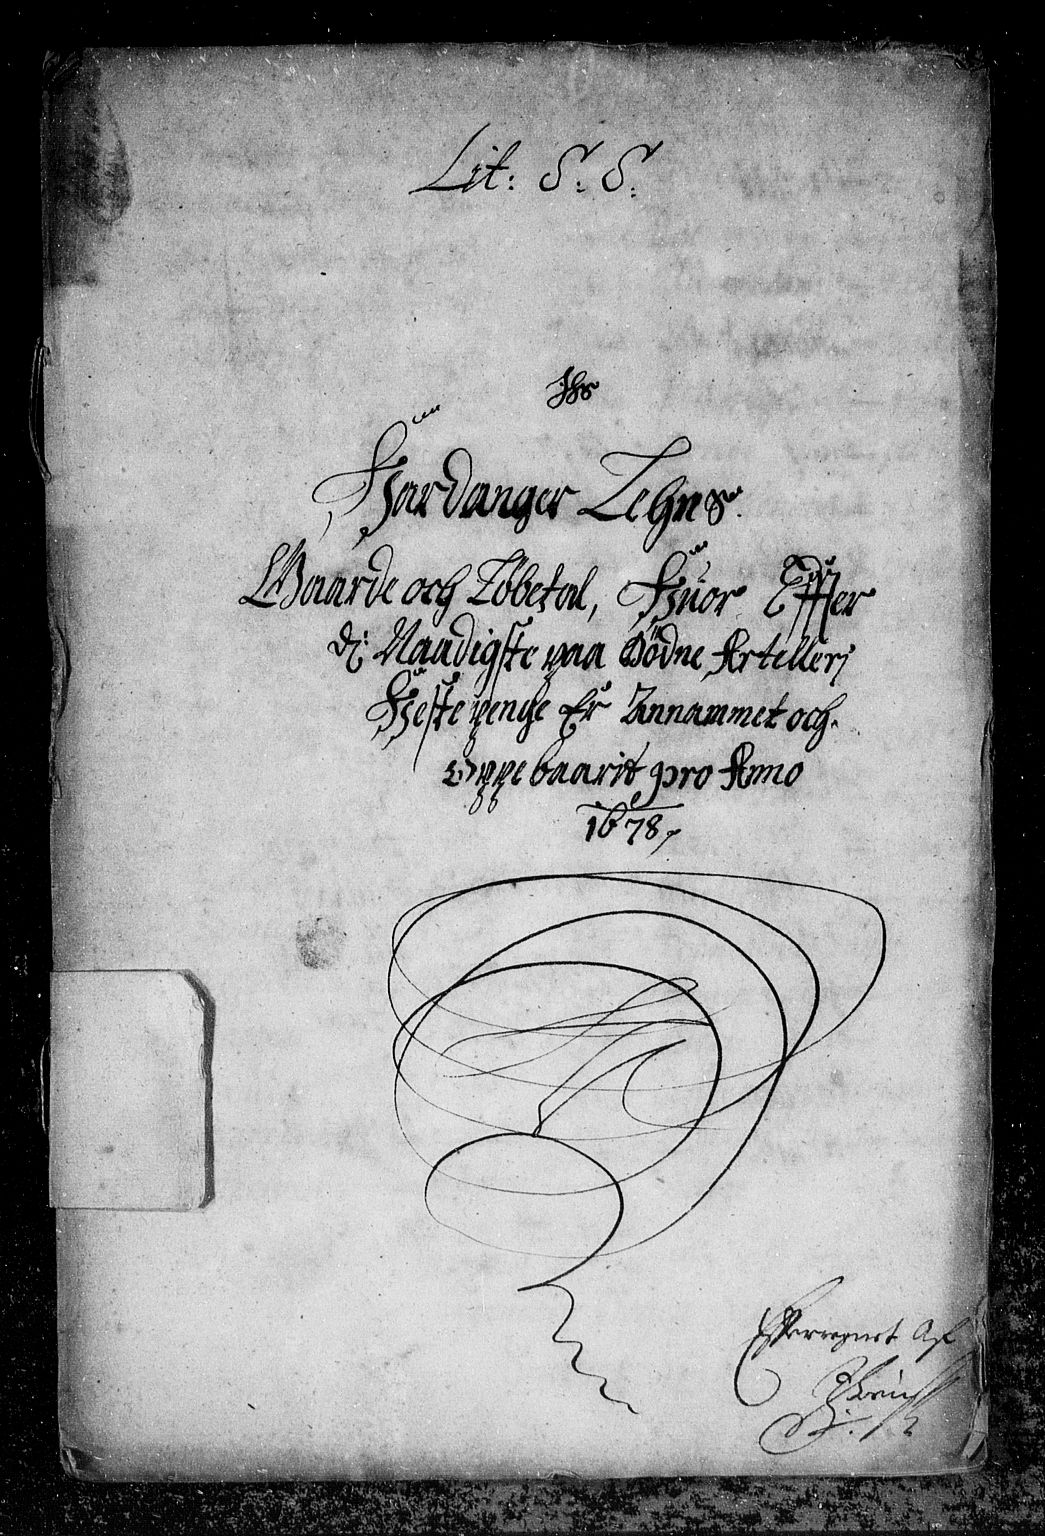 Lit: S: S:
Jhs
Hardanger Lehns
Gaarde och Løbetal, Huor Effter
di Naadigste paa Bødne Artellerj
Heste penge Er Annammet och
Oppebaarit pro Anno
1678
Effterregnet Af